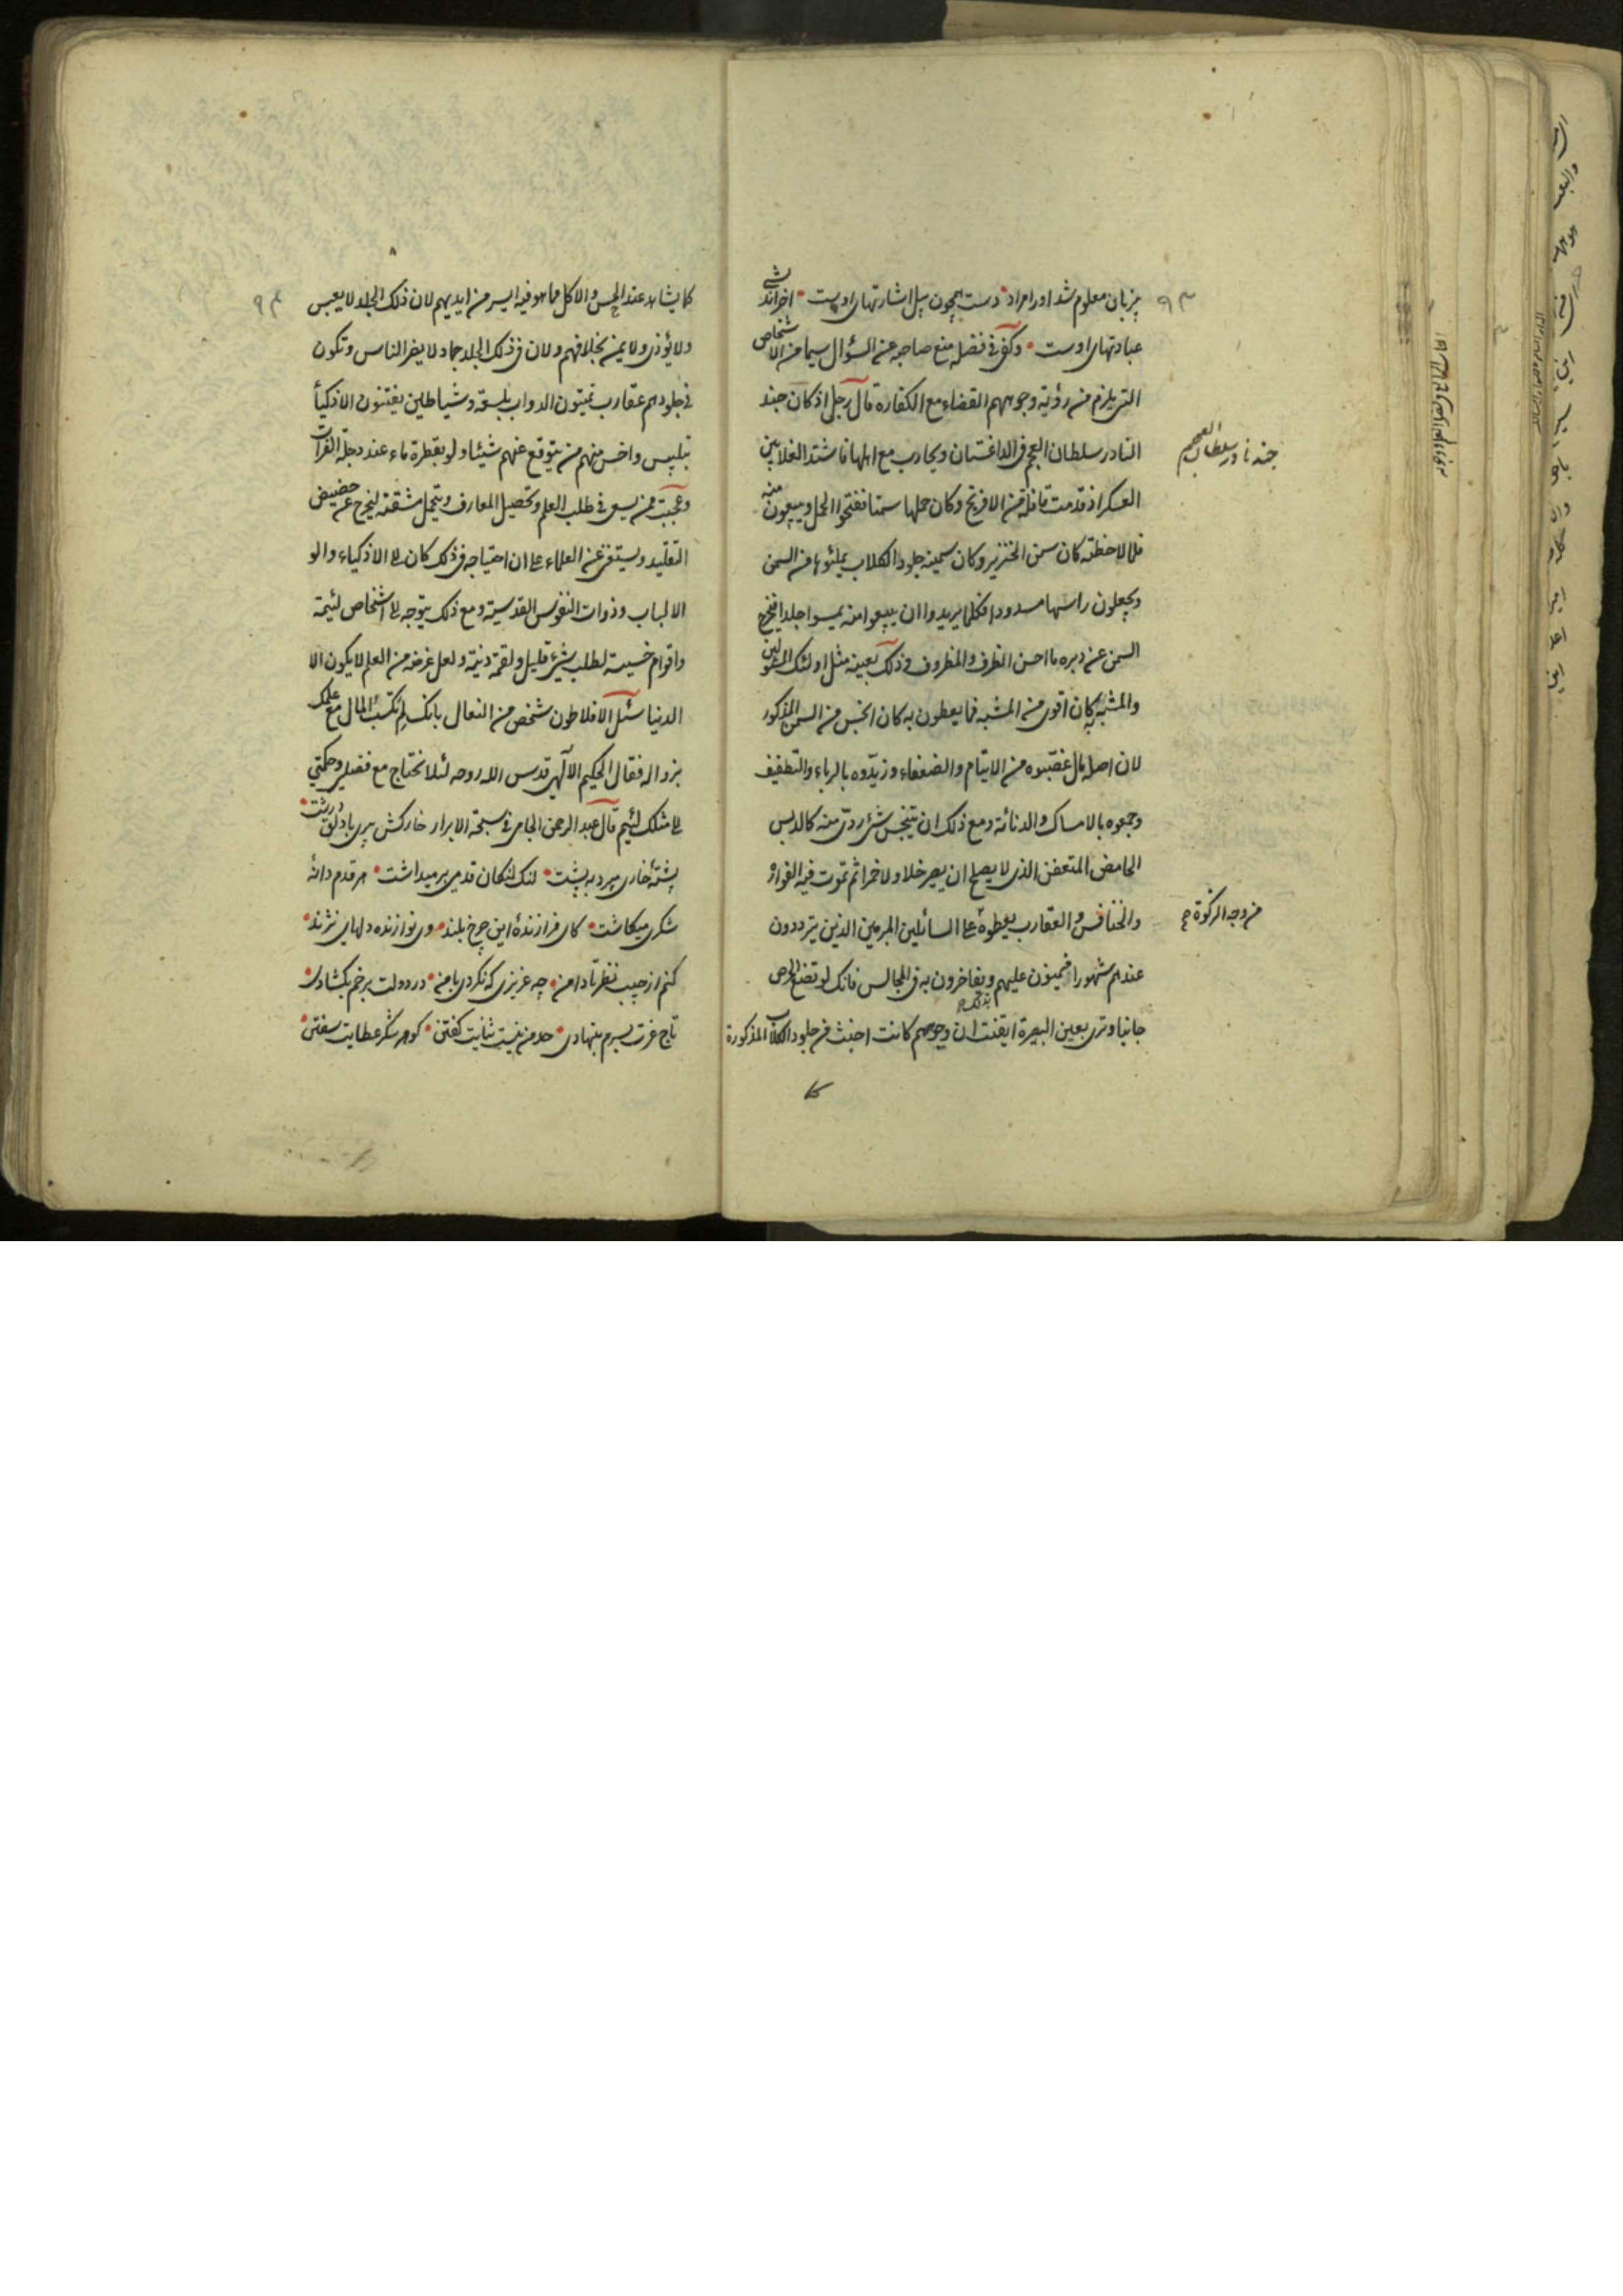 ٩٣
بر زبان معلوم شد او را مراد • دست همچون بیل اشارتهای اوست • آخر اندیشی
عبارتهای اوست • وکفی فی فضله منع صاحبه عن السؤال سیما من الاشخاص
التی یلزم من رؤیة وجوههم القضاء مع الکفارة قال رجل اذ کان جند
النادر سلطان العجم فی الداغستان ویحارب مع اهلها فاشتد الغلا بین
العسکر اذ قدمت قافلة من الافرنج وکان حملها سمنا ففتحوا الحمل ویبیعون منه
فلما لاحظته کان سمن الخنزیر وکان سمینه جلود الکلاب یملئونها من السمن
ویجعلون راسها مسدودا فکلما یریدوا ان یبیعوا منه یمسوا جلدا فیخرج
السمن عن دبره ما احسن الظرف والمظروف وذلک بعینه مثل اولئک المتمولین
والمشبه کان اقوی من المشبه فما یعطون به کان انجس من السمن المذکور
لان اصل مال غصبوه من الایتام والضعفاء وزیدوه بالرباء والتطفیف
وجمعوه بالامساک والدنائة ومع ذلک ان یتنجس شئ ردی منه کالدبس
الحامض المتعفن الذی لا یصلح ان یصیر خلا ولا خمرا ثم تموت فیه الفواره
والخنافس والعقارب یعطوه علی السائلین المبرمین الذین یترددون
عندهم شهورا فیمنون علیهم ویفاخرون به فی المجالس فانک لو تضع الحرص
جانبا وتری بعین البصیرة ایقنت ان وجوههم کانت اخبث من جلود الکلاب المذکورة
کا
جند نادر سلطان العجم
من وجه الزکوة صح
٩٤
کما یشاهد عند الحبس والاکل مما هو فیه ایسر من ایدیهم لان ذلک الجلد لا یعبس
ولا یؤذی ولا یمن بخلافهم ولان فی ذلک الجلد جماد لا یضر الناس وتکون
فی جلودهم عقارب یمیتون الدواب بلسعة وشیاطین یفتنون الاذکیاء
بتلبیس واخس منهم من یتوقع عنهم شیئا ولو بقطرة ماء عند دجلة الفرات
وعجبت ممن یسعی فی طلب العلم وتحصیل المعارف ویتحمل مشقته لیخرج عن حضیض
التقلید ویستغنی عن العلماء علی ان احتیاجه فی ذلک کان الی الاذکیاء واولو
الالباب وذوات النفوس القدسیة ومع ذلک یتوجه الی اشخاص لئیمة
واقوام خسیسة لطلب شئ قلیل ولقمة دنیة ولعل غرضه من العلم لا یکون الا
الدنیا سئل الافلاطون شخص من النعال بانک لم تکتسب المال مع علمک
بزواله فقال الحکیم الالهی قدس الله روحه لئلا نحتاج مع فضلی وحکمتی
الی مثلک لئیم قال عبد الرحمن الجامی فی سبحة الابرار خارکش پیری با دلق درشت •
پشتۀ خاری میبرد به پشت • لنگ لنگان قدمی برمیداشت • هر قدم دانۀ
شکری میکاشت • کای فرازندۀ این چرخ بلند • وی نوازنده دلهای نژند •
کنم از جیب نظر تا دامن • چه عزیزی که نکردی با من • در دولت برخم بگشادی •
تاج عزت بسرم بنهادی • حد من نیست ثنایت گفتن • گوهر شکر عطایت سفتن •